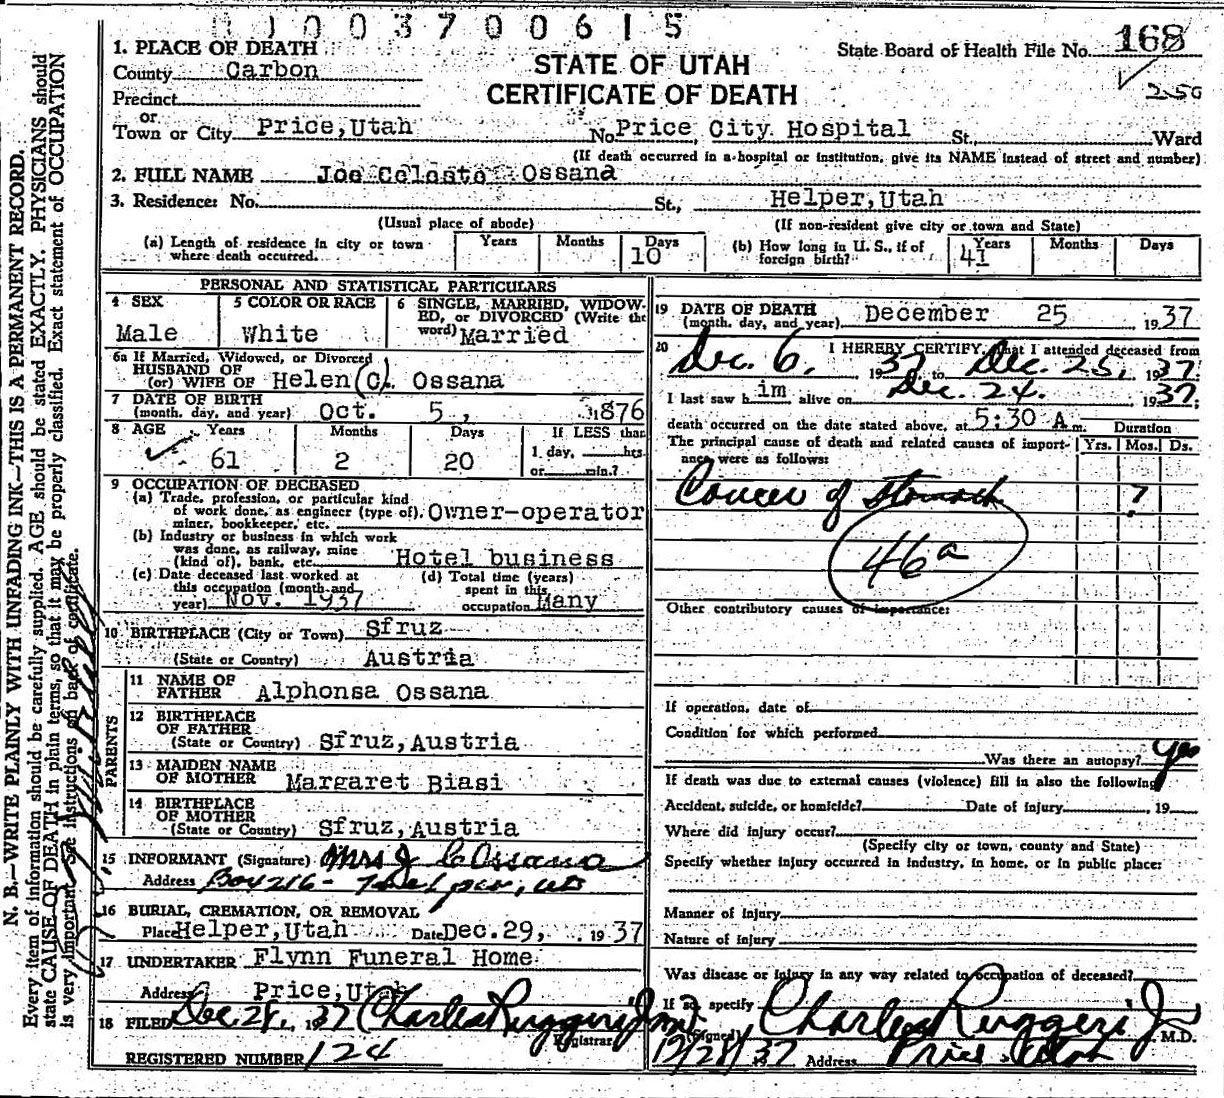 0 1 0 0 3 7 0 0 6 1 5
1. PLACE OF DEATH
County Carbon
Precinct
or
Town or City Price, Utah No. Price City Hospital St., Ward
STATE OF UTAH
CERTIFICATE OF DEATH
State Board of Health File No. 168
2.50
(If death occurred in a hospital or institution, give its NAME instead of street and number)
2. FULL NAME Joe Celeste Ossana
3. Residence: No. St., Helper, Utah
(Usual place of abode) (If non-resident give city or town and State)
(a) Length of residence in city or town where death occurred. Years Months Days 10
(b) How long in U. S., if of foreign birth? Years 41 Months Days
PERSONAL AND STATISTICAL PARTICULARS
4 SEX Male
5 COLOR OR RACE White
6 SINGLE, MARRIED, WIDOWED, OR DIVORCED (Write the word) Married
6a If Married, Widowed, or Divorced
HUSBAND OF
(or) WIFE OF Helen (C). Ossana
7 DATE OF BIRTH
(month, day, and year) Oct. 5, 1876
8 AGE Years 61 Months 2 Days 20 If LESS than 1 day, hrs. or min.?
9 OCCUPATION OF DECEASED
(a) Trade, profession, or particular kind
of work done, as engineer (type of),
miner, bookkeeper, etc. Owner-operator
(b) Industry or business in which work
was done, as railway, mine
(kind of), bank, etc. Hotel business
(c) Date deceased last worked at
this occupation (month and
year) Nov. 1937
(d) Total time (years)
spent in this
occupation Many
10 BIRTHPLACE (City or Town) Sfruz
(State or Country) Austria
PARENTS
11 NAME OF
FATHER Alphonsa Ossana
12 BIRTHPLACE
OF FATHER
(State or Country) Sfruz, Austria
13 MAIDEN NAME
OF MOTHER Margaret Biasi
14 BIRTHPLACE
OF MOTHER
(State or Country) Sfruz, Austria
15 INFORMANT (Signature) Mrs J C Ossana
Address Box 216 - Helper, Ut
16 BURIAL, CREMATION, OR REMOVAL
Place Helper, Utah Date Dec. 29, 1937
17 UNDERTAKER Flynn Funeral Home
Address Price, Utah
18 FILED Dec. 28, 1937 Charles Ruggeri Jr M.D.
Registrar
REGISTERED NUMBER 124
19 DATE OF DEATH
(month, day, and year) December 25, 1937
20 I HEREBY CERTIFY, that I attended deceased from
Dec. 6, 1937, to Dec. 25, 1937.
I last saw h im alive on Dec. 24, 1937,
death occurred on the date stated above, at 5:30 A m. Duration
The principal cause of death and related causes of importance were as follows: Yrs. Mos. Ds.
Cancer of Stomach ?
46a
Other contributory causes of importance:
If operation, date of
Condition for which performed
Was there an autopsy? Yes
If death was due to external causes (violence) fill in also the following:
Accident, suicide, or homicide? Date of injury, 19
Where did injury occur?
(Specify city or town, county and State)
Specify whether injury occurred in industry, in home, or in public place:
Manner of Injury
Nature of Injury
Was disease or injury in any way related to occupation of deceased?
If so, specify
(Signed) Charles Ruggeri Jr M.D.
12/28/37 Address Price, Utah
N. B.—WRITE PLAINLY WITH UNFADING INK—THIS IS A PERMANENT RECORD.
Every item of information should be carefully supplied. AGE should be stated EXACTLY. PHYSICIANS should
state CAUSE OF DEATH in plain terms, so that it may be properly classified. Exact statement of OCCUPATION
is very important. See instructions on back of certificate.